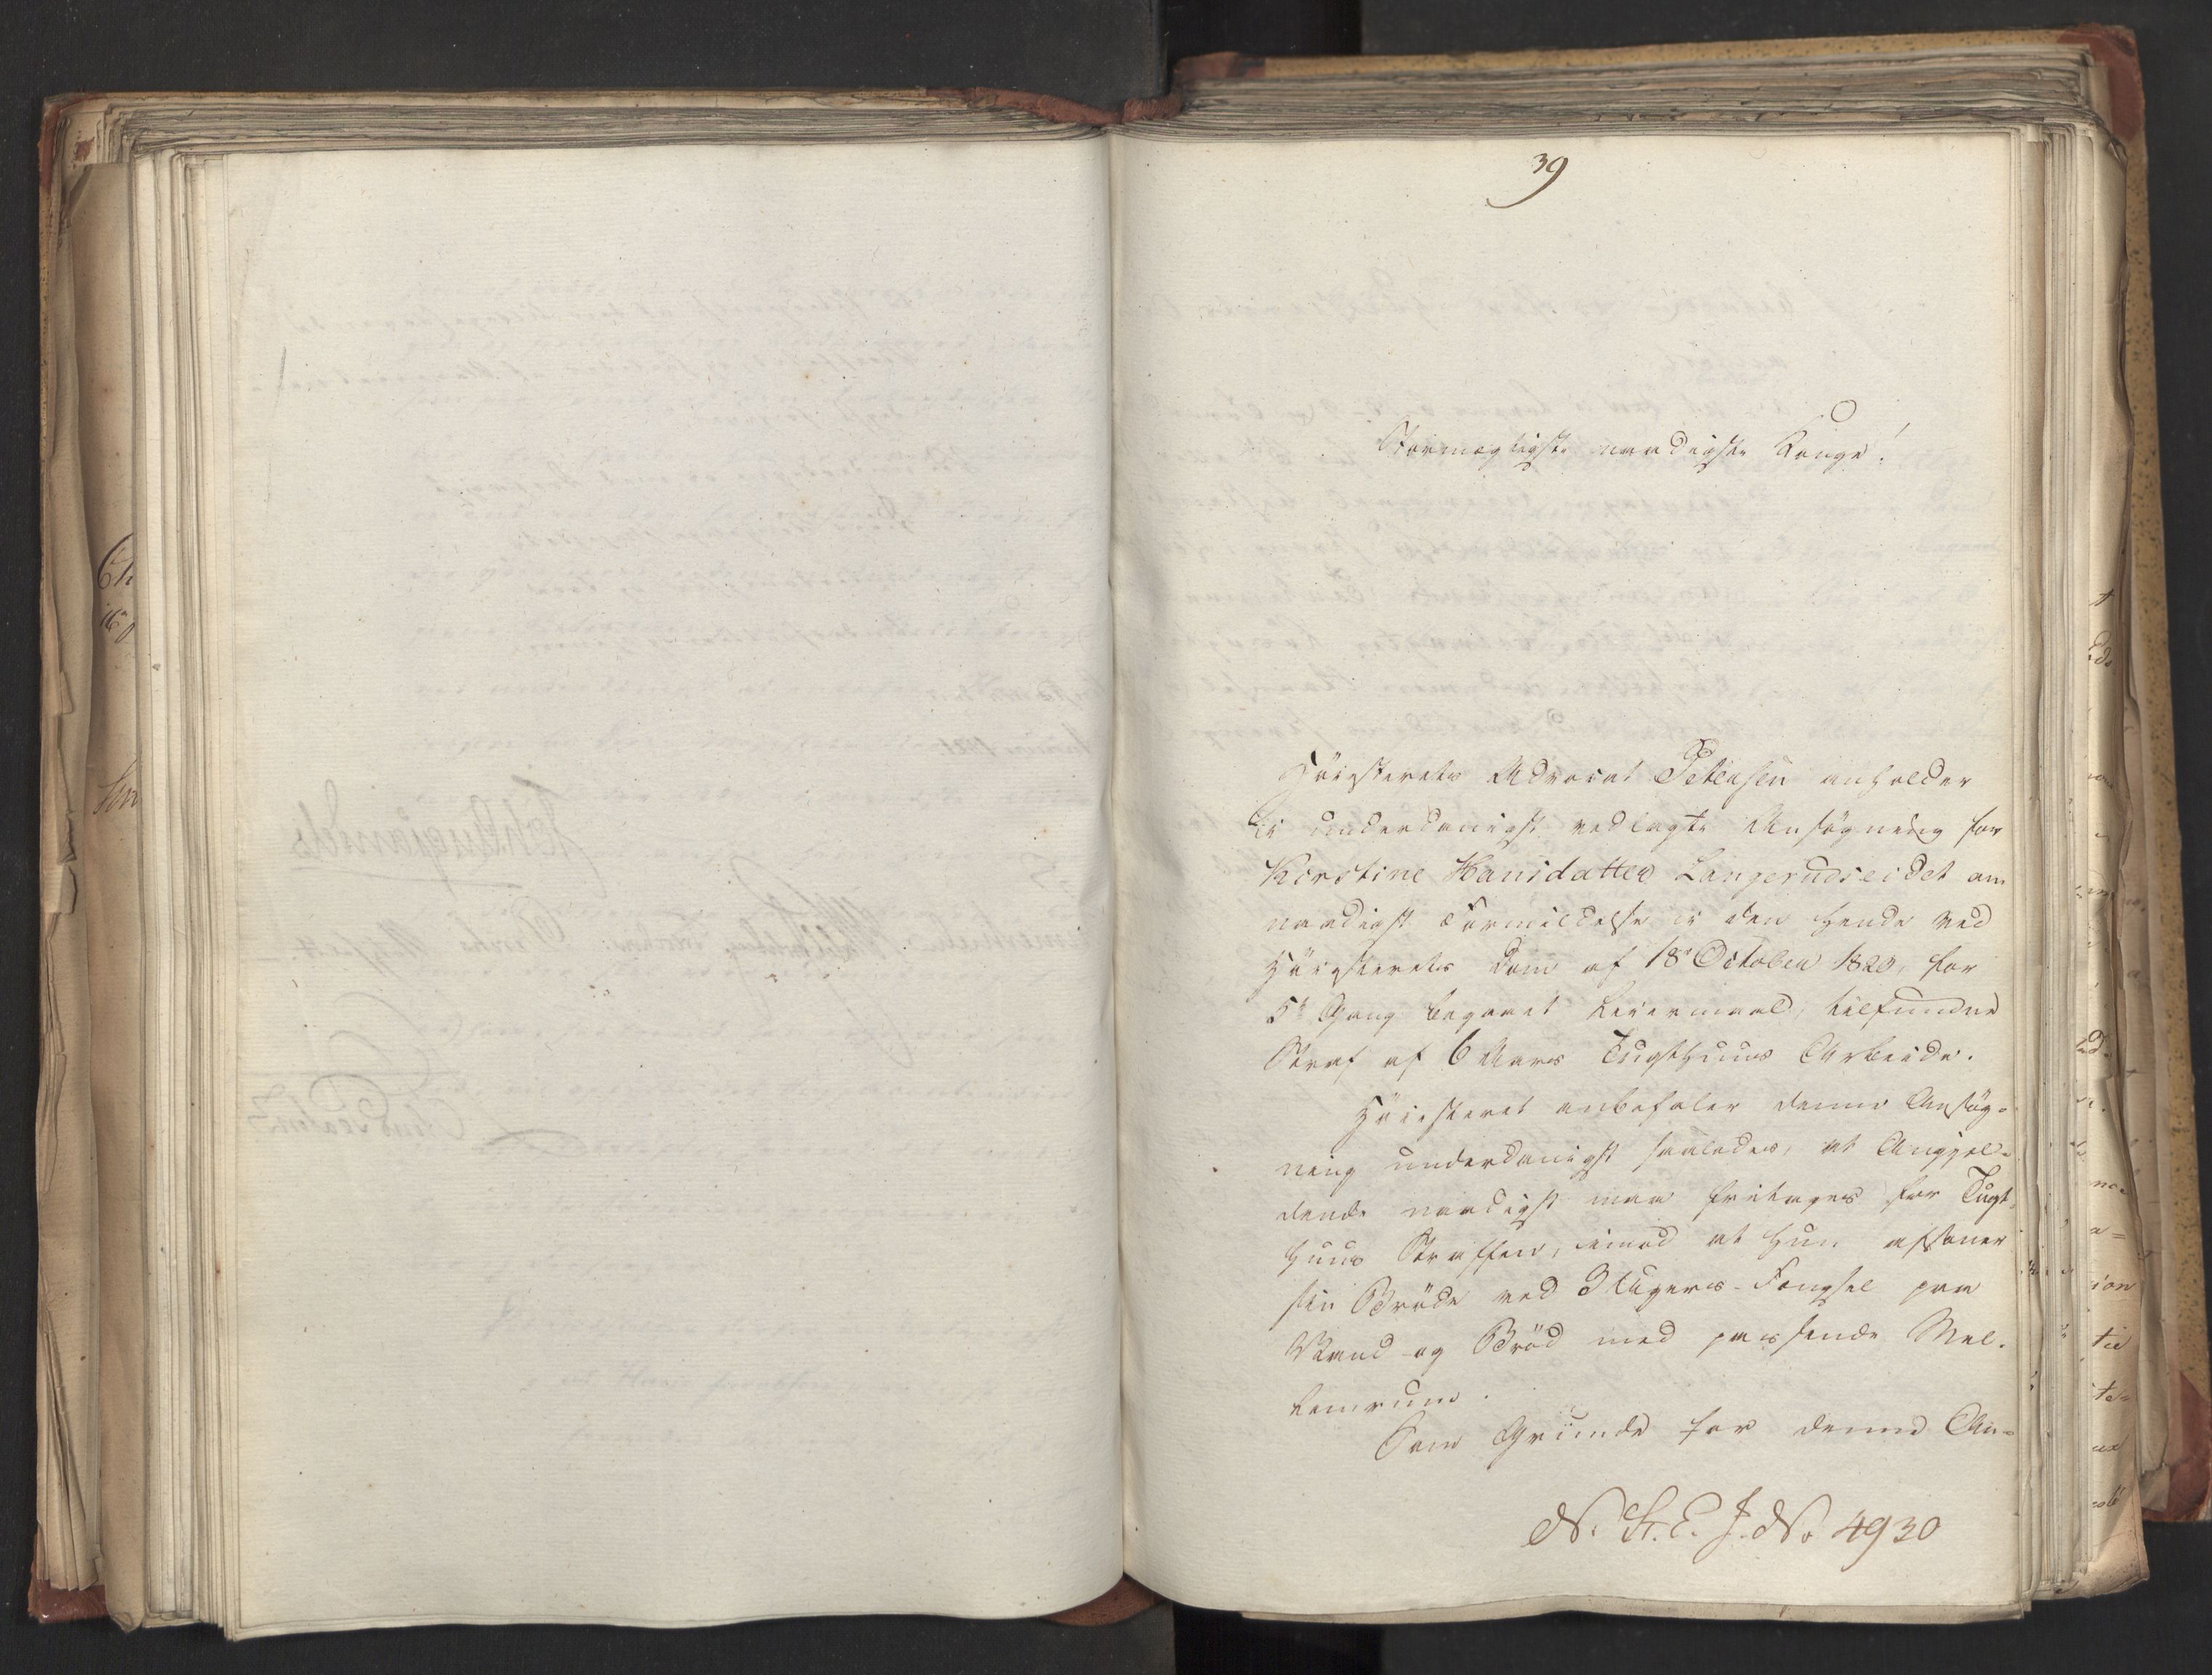 39
Stormægtigste naadigste Konge!
Höiesterets Advocat Petersen anholder
i underdanigst vedlagte Ansögning for
Kirstine Hansdatter Langerudseidet om
naadigst Formildelse i den hende ved
Höiesterets Dom af 18de October 1820, for
5te Gang begaaet Leiermaal, tilfundne
Straf af 6 Aars Tugthuus Arbeide.
Höiesteret anbefaler denne Ansög-
ning underdanigst saaledes, at Angjel-
dende naadigst maa fritages for Tugt-
huus Straffen, imod at hun afsoner
sin Bröde ved 3 Ugers-Fængsel paa
Vand og Bröd med passende Mel-
lemrum.
Som Grunde for denne An-
N. St. E. J. No 4930